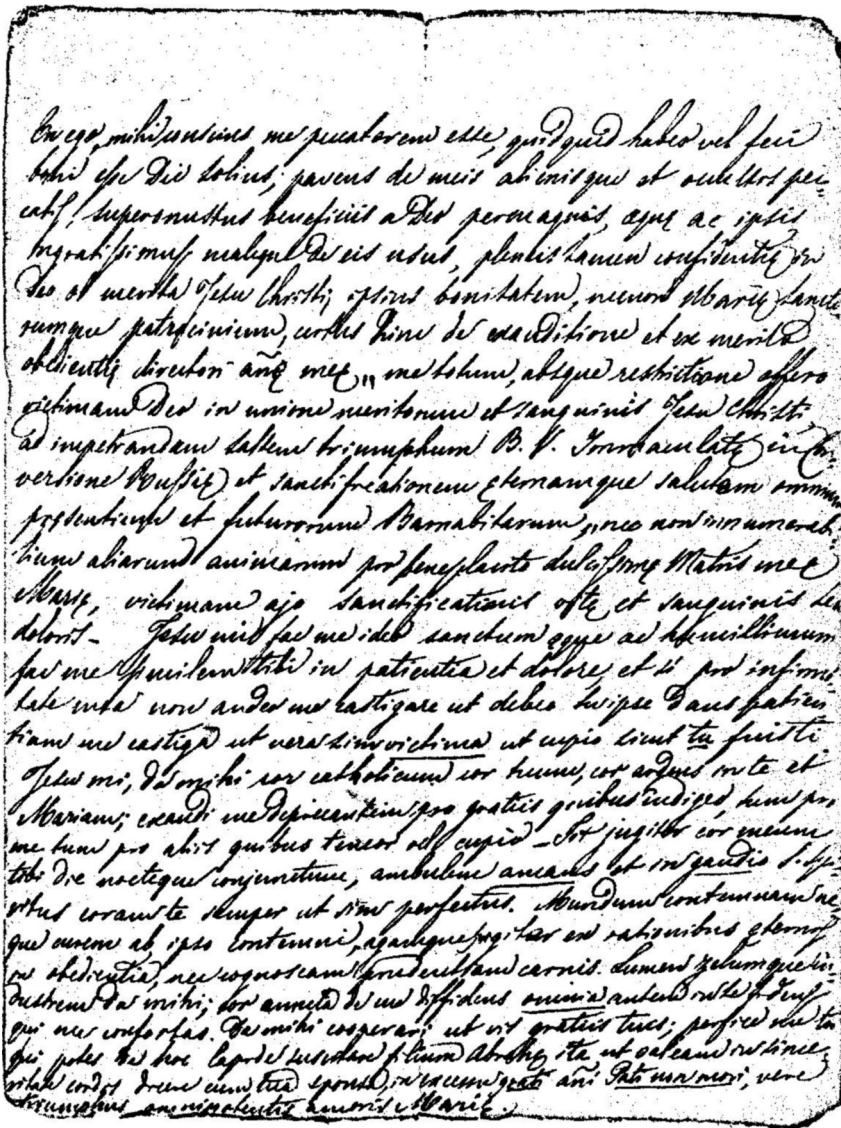 En ego, mihi conscius me peccatorem esse, quidquid habeo vel feci
boni esse Dei solius; pavens de meis alienisque et occultis pec-
catis, superonustus beneficiis a Deo permagnis, æque ac ipsis
ingratissimus, maleque de eis usus, plenus tamen confidentię in
Deo ob merita Jesu Christi, ipsius bonitatem, necnon Marię Sancto-
rumque patrocinium, certus hinc de exauditione et ex merito
obedientię directori anę meę „ me totum, absque restrictione offero
victimam Deo in unione meritorum et sanguinis Jesu Christi,
ad impetrandam saltem triumphum B. V. Immaculatę in Con-
versione Russię) et sanctificationem ęternamque salutem omnium
pręsentium et futurorum Barnabitarum „ nec non innumerabi-
lium aliarum animarum pro beneplacito dulcissimę Matris meę
Marię, victimam ajo sanctificationis et sanguinis seu
doloris – Jesu mi fac me ideo sanctum ęque ac humillimum
fac me similem tibi in patientia et dolore, et si pro infirmi-
tate mea non audeo me castigare ut debeo tu ipse dans patien
tiam me castiga ut vera sim victima ut cupio sicut tu fuisti
Jesu mi, da mihi cor catholicum cor tuum, cor ardens in te et
Mariam; exaudi me deprecantem pro gratiis quibus indigeo, tum pro
me tum pro aliis quibus teneor vel cupio – Sit jugiter cor meum
tibi die nocteque conjunctum, ambulem amans et in gaudio S. Spi-
ritus coram te semper ut sim perfectus. Mundum contemnam ne-
que curem ab ipso contemni, agamque jugiter ex rationibus ęternis
in obedientia, nec cognoscam prudentiam carnis. Lumen zelumque in-
dustrem da mihi; cor de me diffidens omnia autem in te fidens
qui me confortas. Da mihi cooperari ut vis gratiis tuis; perfice me tu
qui potes de hoc lapide suscitare filium Abrahę ita ut valeam in since-
ritate cordis dicere cum tua sponsa, in excessu grati ani Pati non mori, vere
triumphus omnipotentis amoris Marię.